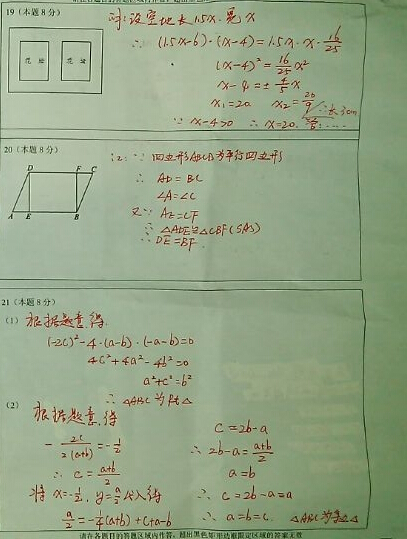 19（本题 8 分）
花坛 花坛
解：设空地长1.5x. 宽x
∴ (1.5x-6)·(x-4)=1.5x·x·16/25
(x-4)²=16/25x²
x-4=±4/5x
x₁=20 x₂=20/9
∵ x-4>0 ∴ x=20.
20（本题 8 分）
D F C
A E B
证：∵ 四边形ABCD为平行四边形
∴ AD=BC
∠A=∠C
又∵ AE=CF
∴ △ADE≌△CBF(SAS)
∴ DE=BF.
21（本题 8 分）
（1） 根据题意,得
(-2c)²-4·(a-b)·(-a-b)=0
4c²+4a²-4b²=0
a²+c²=b²
∴ △ABC 为Rt△
（2） 根据题意,得
-2c/2(a+b)=-1/2
∴ c=a+b/2
将 x=-1/2, y=a/2代入得
a/2=-1/4(a+b)+c+a-b
c=2b-a
∴ 2b-a=a+b/2
a=b
∴ c=2b-a=a
∴ a=b=c. △ABC为等边△
请在各题目的答题区域内作答，超出黑色矩形边框限定区域的答案无效